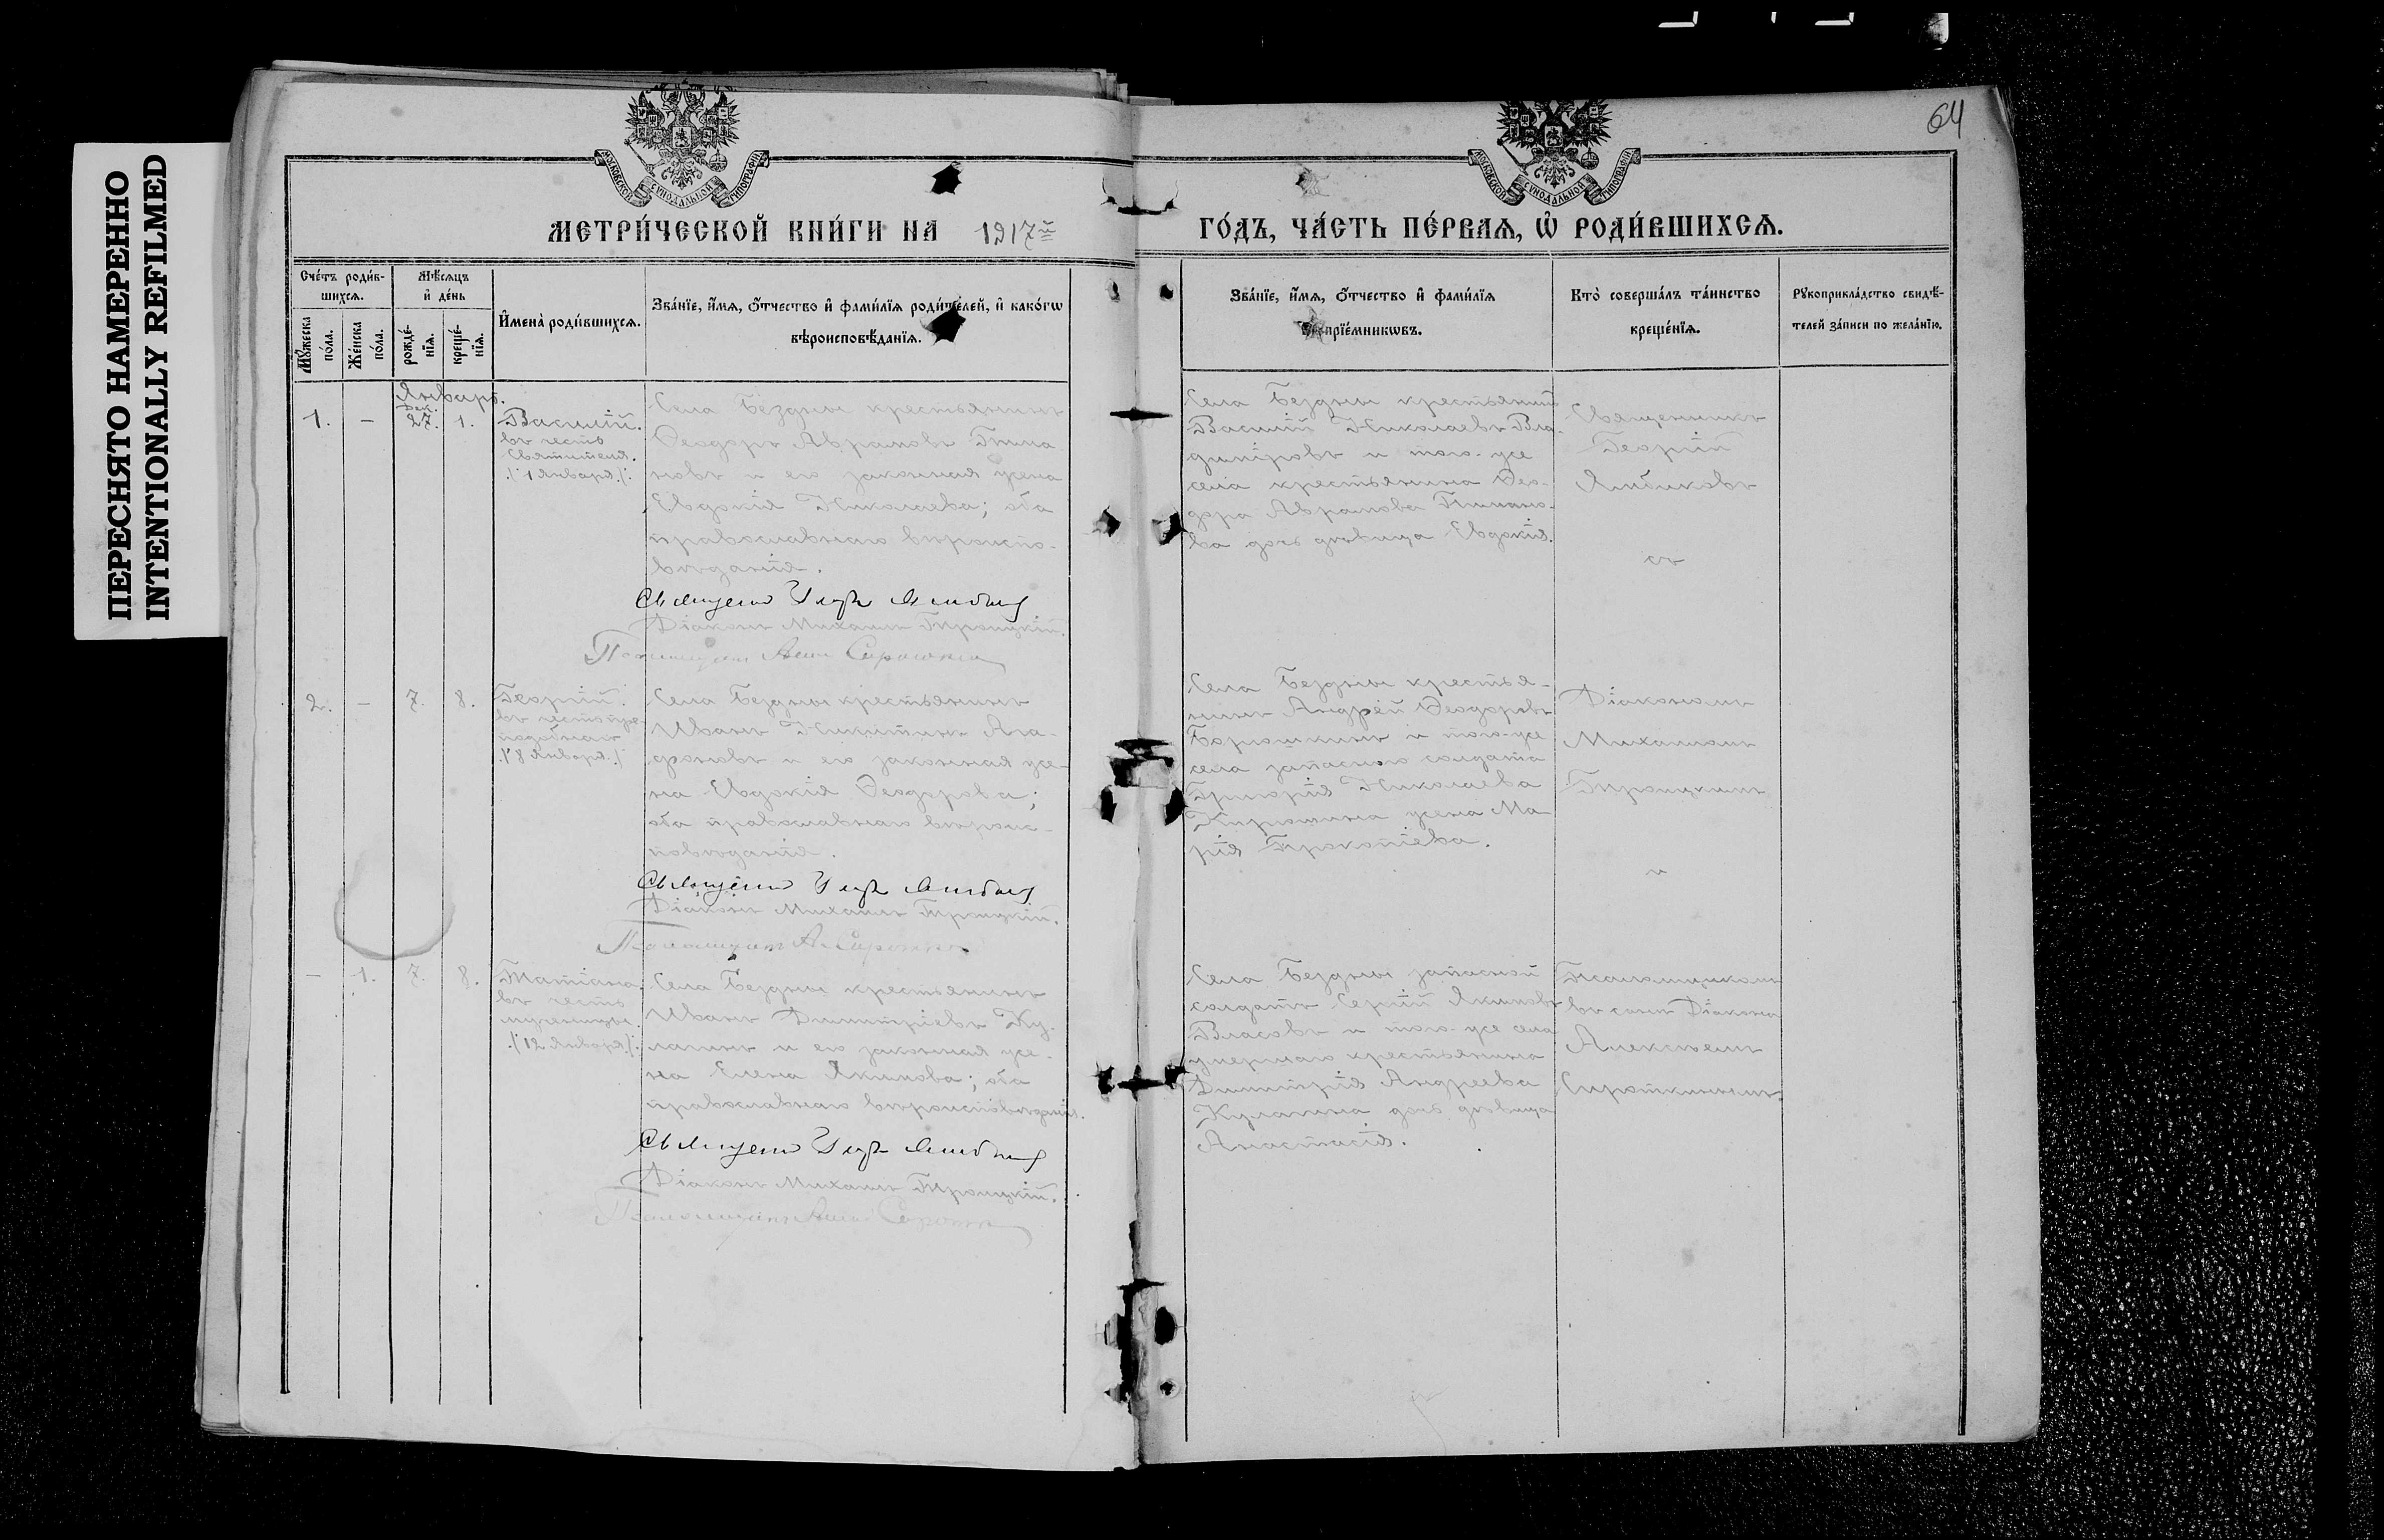 64
ПЕРЕСНЯТО НАМЕРЕННО
INTENTIONALLY REFILMED
МОСКОВСКОЙ СѴНОДАЛЬНОЙ ТИПОГРАФІИ
МОСКОВСКОЙ СѴНОДАЛЬНОЙ ТИПОГРАФІИ
МЕТРИ́ЧЕСКОЙ КНИ́ГИ НА 1917й
ГО́ДЪ, ЧА́СТЬ ПЕ́РВАѦ, Ѡ҆ РОДИ́ВШИХСѦ.
Сче́тъ роди́в-
шихсѧ.
Мꙋ́жеска
по́ла.
Же́нска
по́ла.
Мѣ́сѧцъ
и҆ де́нь
рожде́-
нїѧ.
креще́-
нїѧ.
И҆мена̀ роди́вшихсѧ.
Зва́нїе, и҆́мѧ, ѻ҆́тчество и҆ фами́лїѧ роди́телей, и҆ како́гѡ
вѣроисповѣ́данїѧ.
Зва́нїе, и҆́мѧ, ѻ҆́тчество и҆ фами́лїѧ
прїе́мникѡвъ.
Кто̀ соверша́лъ та́инство
креще́нїѧ.
Рꙋкоприкла́дство свидѣ́-
телей за́писи по жела́нїю.
Январь.
Дек.
1. – 27. 1.
Василій.
въ честь
Святителя.
/: 1 января :/
Села Бездны крестьянинъ
Ѳеодоръ Аврамовъ
новъ и его законная жена
Евдокія Николаева; оба
православнаго вѣроиспо-
вѣданія.
Діаконъ Михаилъ Троицкій.
Села Бездны крестьянинъ
Василій Николаевъ Вла-
диміровъ и того-же
села крестьянина Ѳео-
дора Аврамова
ва дочь дѣвица Евдокія.
Священникъ
Георгій
Ямбиковъ
съ
2. – 7. 8.
Георгій.
въ честь пре-
подобнаго
/: 8 января :/
Села Бездны крестьянинъ
Иванъ Никитинъ Ага-
фоновъ и его законная же-
на Евдокія Ѳеодорова;
оба православнаго вѣроис-
повѣданія.
Діаконъ Михаилъ Троицкій.
Села Бездны крестья-
нинъ Андрей Ѳеодоровъ
и того-же
села запаснаго солдата
Григорія Николаева
жена Ма-
рія Прокопіева.
Діакономъ
Михаиломъ
Троицкимъ
и
– 1. 7. 8.
Татіана.
въ честь
мученицы.
/: 12 января :/
Села Бездны крестьянинъ
Иванъ Димитріевъ Ку-
лагинъ и его законная же-
на Елена Якимова; оба
православнаго вѣроисповѣданія.
Діаконъ Михаилъ Троицкій.
Села Бездны запасной
солдатъ Сергій Якимовъ
Власовъ и того-же села
умершаго крестьянина
Димитрія Андреева
Кулагина дочь дѣвица
Анастасія.
Псаломщикомъ
въ санѣ Діакона
Алексѣемъ
Сироткинымъ.